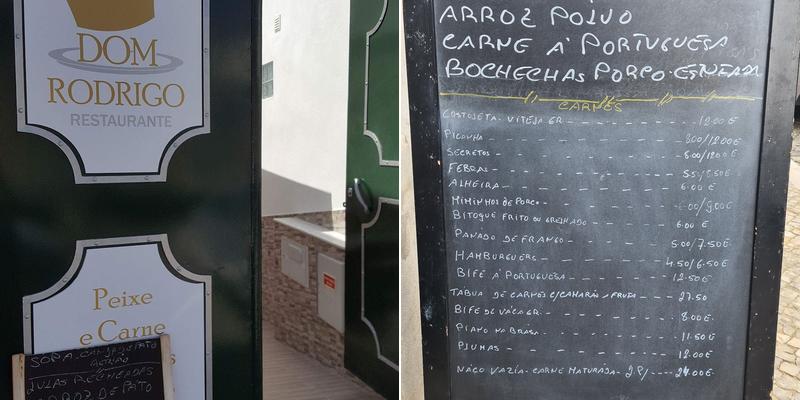 DOM
RODRIGO
RESTAURANTE
Peixe
e Carne
SOPA
LULAS RECHEADAS
DE PATO
ARROZ POLVO
CARNE Á PORTUGUESA
BOCHECHAS PORCO
CARNES
COSTOLETA VITELA GR. 12.00 €
PICANHA 8.00/12.00 €
SECRETOS 8.00/12.00 €
FEBRAS 5.5/8.50€
ALHEIRA 6.00 €
MIMINHOS DE PORCO /9.00€
BITOQUE FRITO OU GRELHADO 6.00 €
PANADO DE FRANGO 5.00/7.50€
HAMBURGUERS 4.50/6.50€
BIFE Á PORTUGUESA 12.50€
TABUA DE CARNES C/CAMARÃO E FRUTA 27.50
BIFE DE VACA GR. 8.00€
PIANO NA BRASA 11.50€
PLUMAS 12.00€
NACO VAZIA - CARNE MATURADA - 2.P/ 24.00€